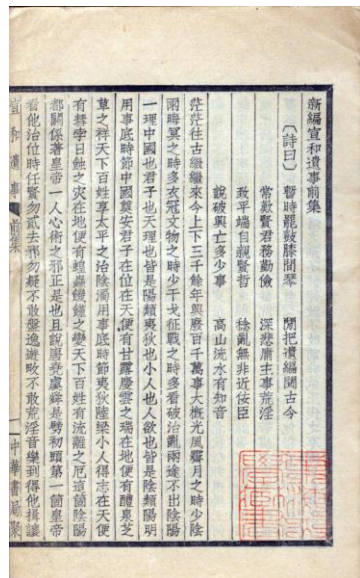 新編宣和遺事前集
〔詩曰〕 暫時罷鼓膝間琴 閒把遺編閱古今
常歎賢君務勤儉 深悲庸主事荒淫
致平端自親賢哲 稔亂無非近佞臣
說破興亡多少事 高山流水有知音
茫茫往古繼繼來今上下三千餘年興廢百千萬事大槪光風霽月之時少陰
雨晦冥之時多衣冠文物之時少干戈征戰之時多看破治亂兩途不出陰陽
一理中國也君子也天理也皆是陽類夷狄也小人也人欲也皆是陰類陽明
用事底時節中國奠安君子在位在天便有甘露慶雲之瑞在地便有醴泉芝
草之祥天下百姓享太平之治陰濁用事底時節夷狄陸梁小人得志在天便
有彗孛日蝕之災在地便有蝗蟲饑饉之變天下百姓有流離之厄這箇陰陽
都關係著皇帝一人心術之邪正是也且說唐堯虞舜是劈初頭第一箇皇帝
看他治位時任賢勿貳去邪勿疑不敢盤逸遊畋不敢荒淫音樂到得他揖讓
宣和遺事 前集 一 中華書局聚